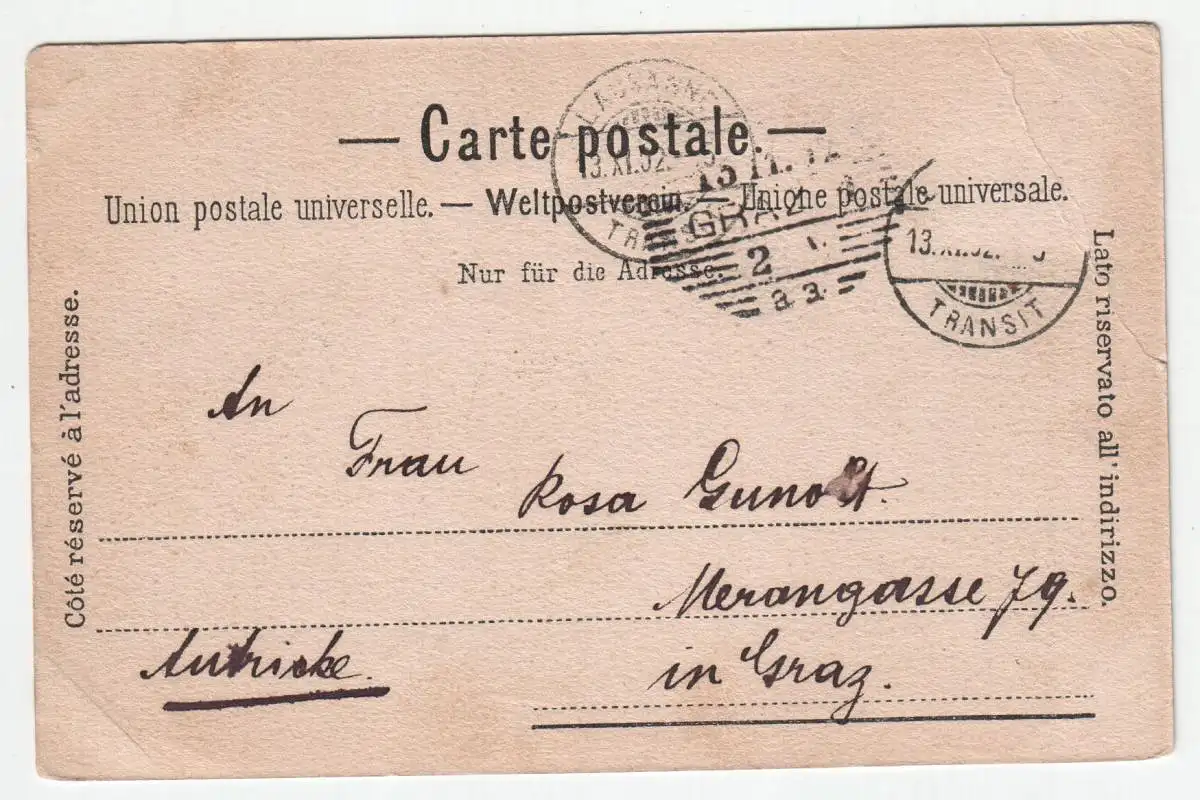 — Carte postale. —
Union postale universelle. — Weltpostverein. — Unione postale universale.
Nur für die Adresse.
Côté réservé à l'adresse.
Lato riservato all' indirizzo.
LAUSANNE
13.XI.02.
TRANSIT
GRAZ
2
a a
13.XI.02.
TRANSIT
An
Frau Rosa
Merangasse
Autriche
in Graz.